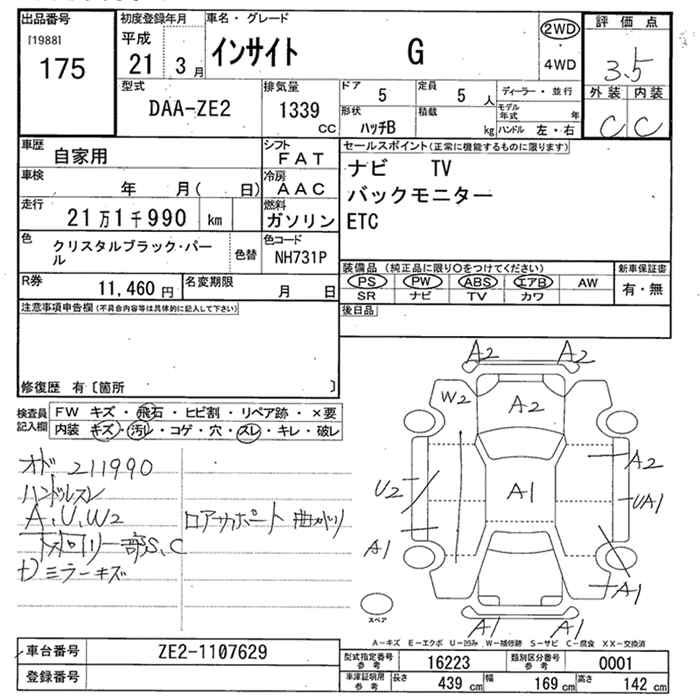 出品番号 初度登録年月 車名・グレード 評価点
[1988]
175
平成
21 3月
インサイト G
2WD
4WD
3.5
外装 内装
C C
型式
DAA-ZE2
排気量
1339
CC
ドア 5
定員 5 人
ディーラー・並行
形状 ハッチB
積載 kg
モデル年式 年
ハンドル 左・右
車歴
自家用
シフト
FAT
セールスポイント(正常に機能するものに限ります)
ナビ TV
バックモニター
ETC
車検
年 月( 日)
冷房
AAC
走行
21万1千990 km
燃料
ガソリン
色
クリスタルブラック・パール
色替
色コード
NH731P
装備品(純正品に限り○をつけてください) 新車保証書
PS PW ABS エアB AW 有・無
SR ナビ TV カワ
R券
11,460円
名変期限
月 日
後日品
注意事項申告欄(不具合内容等は具体的に記入して下さい)
修復歴 有〔箇所 〕
検査員記入欄
FW キズ・飛石・ヒビ割・リペア跡・×要
内装 キズ・汚レ・コゲ・穴・スレ・キレ・破レ
オド 211990
ハンドルスレ
A、U、W2
ロアサポート曲がり
下廻り一部S、C
ミラーキズ
A2 A2
W2
A2
A2
U2
A1
UA1
A1
A1
A1 A1
スペア
A-キズ E-エクボ U-凹み W-補修跡 S-サビ C-腐食 XX-交換済
車台番号
ZE2-1107629
登録番号
型式指定番号 参考 16223 類別区分番号 参考 0001
車庫証明用 参考 長さ 439 cm 幅 169 cm 高さ 142 cm